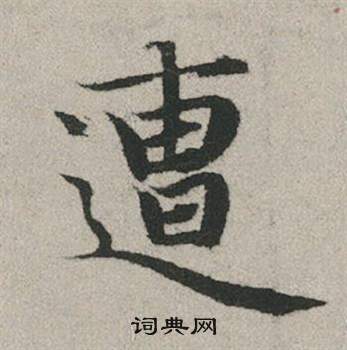 遭
词典网